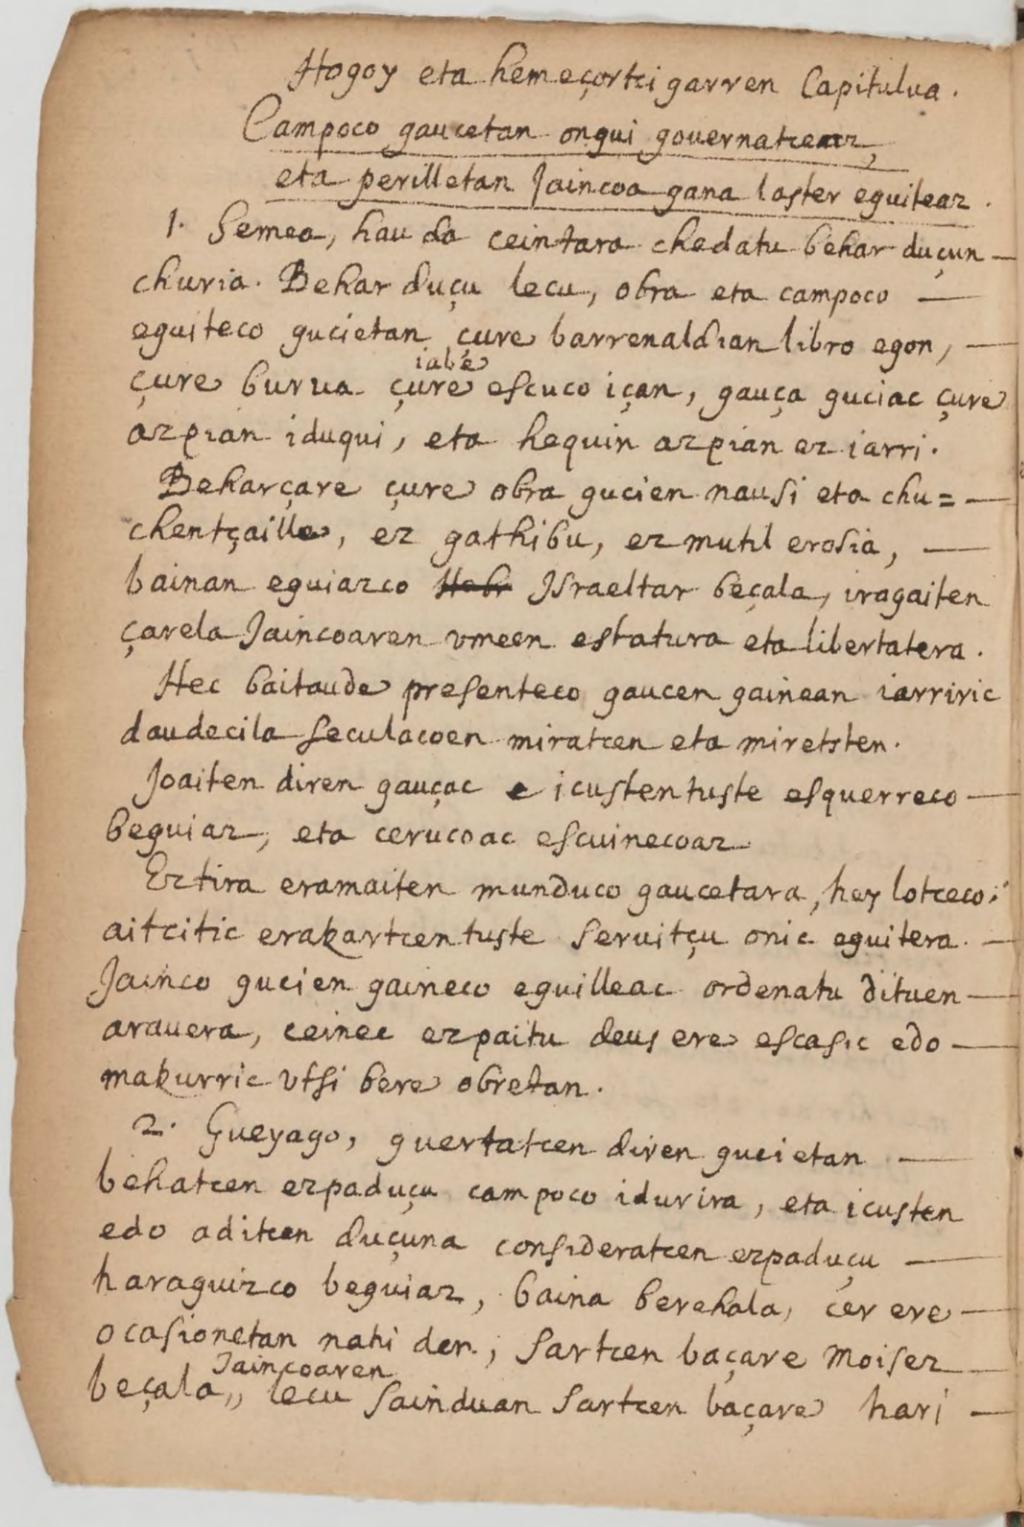 Hogoy eta hemeçortci garren Capitulua.
Campoco gaucetan ongui gouernatceaz,
eta perilletan Jaincoa gana laster eguiteaz.
1. Semea, hau da ceintara chedatu behar duçun —
churia. Behar duçu lecu, obra eta campoco —
eguiteco gucietan çure barrenaldian libro egon, —
iabe
çure burua çure escuco içan, gauça guciac çure
azpian iduqui, eta hequin azpian ez iarri.
Beharçare çure obra gucien nausi eta chu= —
chentçaille, ez gathibu, ez mutil erosia, —
bainan eguiazco Hebr Israeltar beçala, iragaiten
çarela Jaincoaren vmeen estatura eta libertatera.
Hec baitaude presenteco gaucen gainean iarriric
daudecila seculacoen miratcen eta miretsten.
Joaiten diren gauçac e icustentuste esquerreco —
beguiaz, eta cerucoac escuinecoaz.
Eztira eramaiten munduco gaucetara, hey lotceco;
aitcitic erakartcentuste seruitçu onic eguitera. —
Jainco gucien gaineco eguilleac ordenatu dituen —
arauera, ceinec ezpaitu deus ere escasic edo —
makurric vtsi bere obretan.
2. Gueyago, guertatcen diren gucietan —
behatcen ezpaduçu campoco idurira, eta icusten
edo aditcen duçuna consideratcen ezpaduçu —
haraguizco beguiaz, baina berehala, cer ere —
ocasionetan nahi den, sartcen baçare Moisez —
Jaincoaren
beçala,, lecu sainduan sartcen baçare hari —